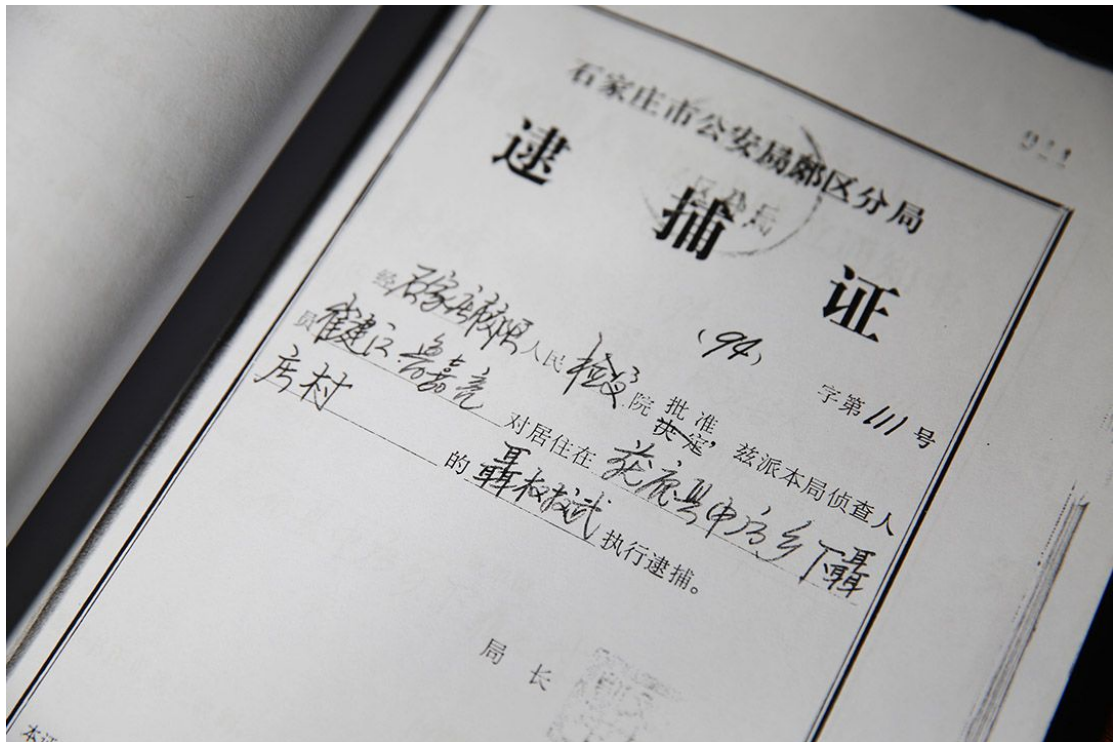 石家庄市公安局郊区分局
逮捕证
(94) 字第111号
经石家庄郊区人民检察院批准决定，兹派本局侦查人
员崔建江 鲁嘉亮 对居住在获鹿县申后乡下聂
庄村 的聂树斌 执行逮捕。
局长
本证